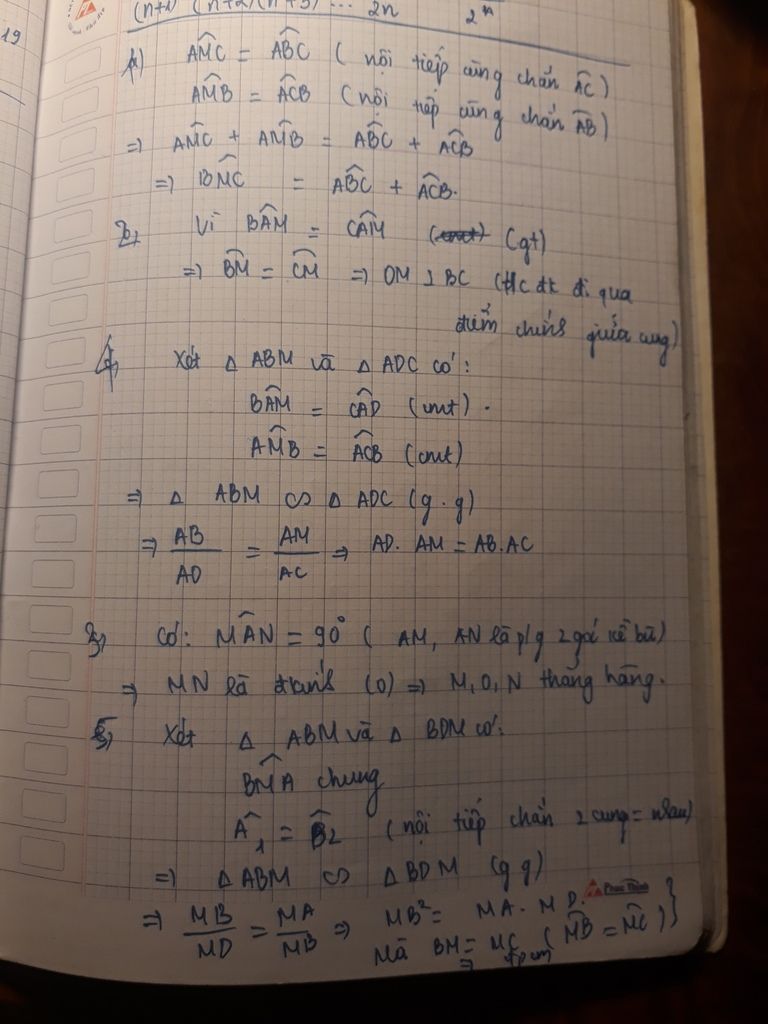 19
(n+1) (n+2)(n+3) ... 2n 2^n
1) AMC = ABC ( nội tiếp cùng chắn AC )
AMB = ACB ( nội tiếp cùng chắn AB )
=> AMC + AMB = ABC + ACB
=> BMC = ABC + ACB.
2, Vì BAM = CAM (cmt) (gt)
=> BM = CM => OM ⊥ BC (t/c đk đi qua
điểm chính giữa cung)
4, Xét Δ ABM và Δ ADC có:
BAM = CAD (cmt).
AMB = ACB (cmt)
=> Δ ABM ∽ Δ ADC (g.g)
=> AB/AD = AM/AC => AD. AM = AB. AC
3, Có: MAN = 90° ( AM, AN là p/g 2 góc kề bù)
=> MN là đkính (O) => M, O, N thẳng hàng.
5, Xét Δ ABM và Δ BDM có:
BMA chung
A1 = B2 (nội tiếp chắn 2 cung = nhau)
=> Δ ABM ∽ Δ BDM (g g)
=> MB/MD = MA/MB => MB² = MA. MD.
Mà BM = MC ( MB = MC ) }
=> đpcm